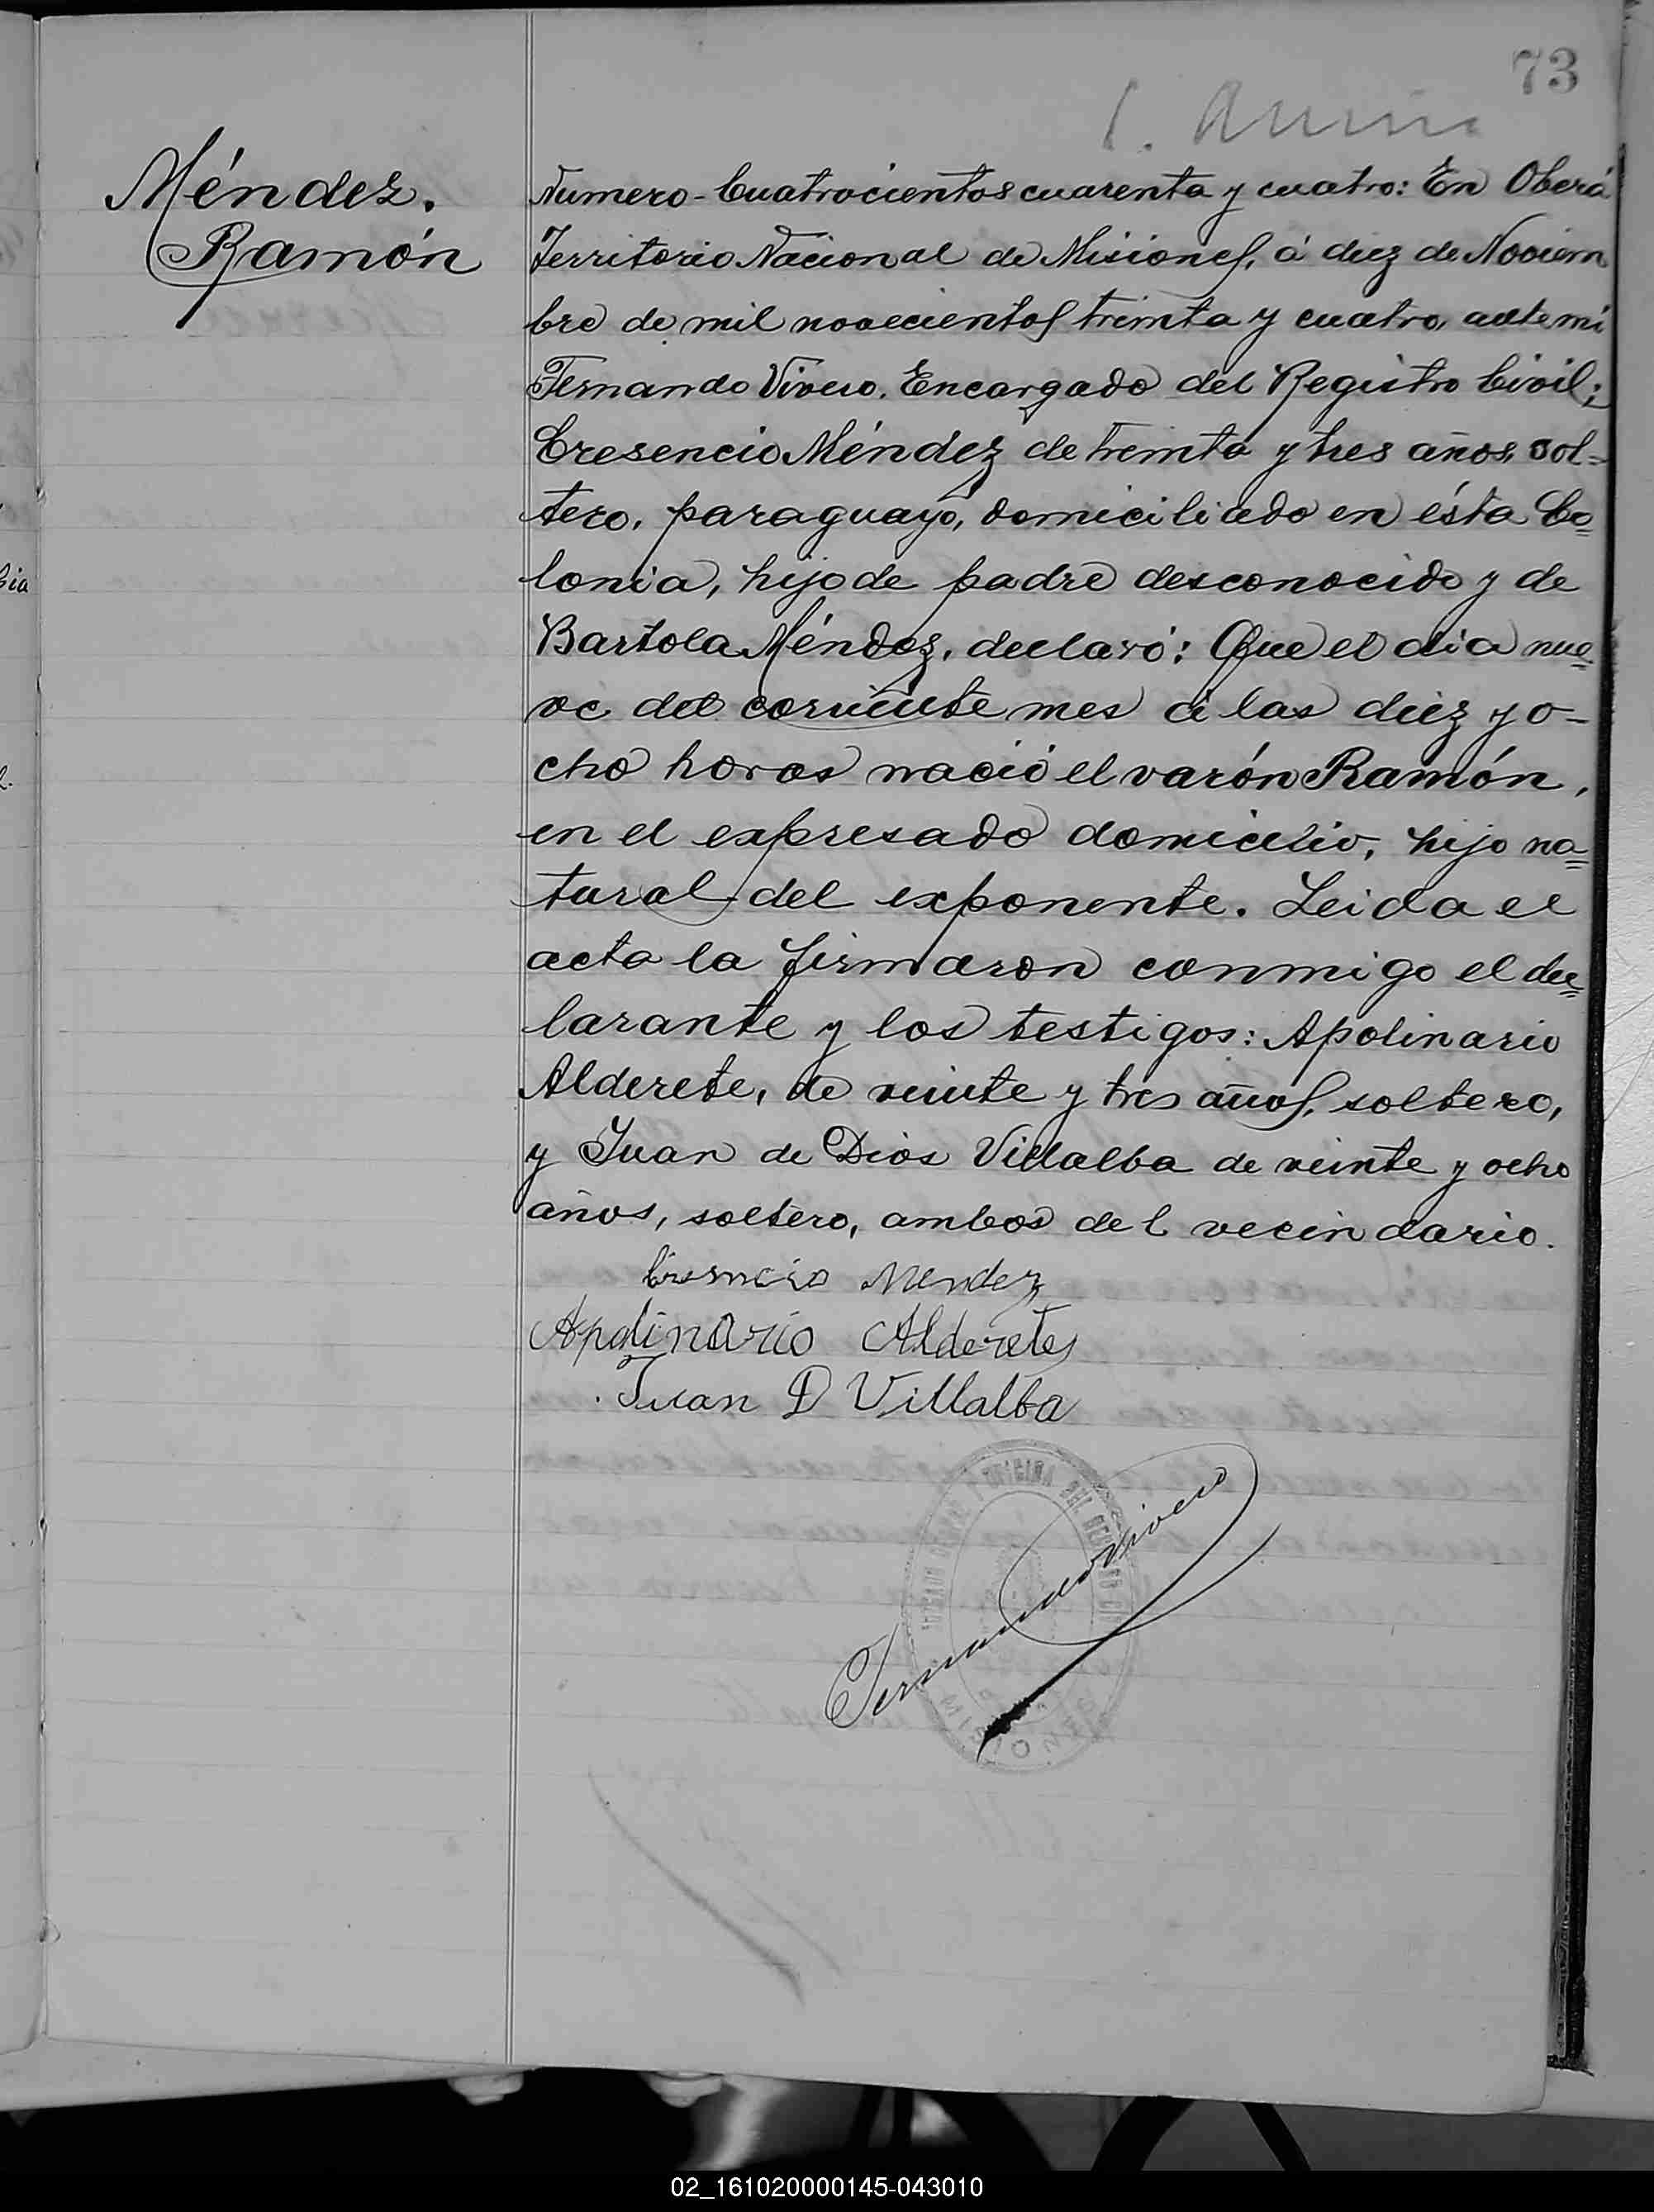 73
Méndez.
Ramón
Numero - Cuatrocientos cuarenta y cuatro: En Oberá
Territorio Nacional de Misiones, á diez de Noviem
bre de mil novecientos treinta y cuatro, ante mi
Fernando Vivero. Encargado del Registro Civil;
Cresencio Méndez de treinta y tres años, sol=
tero, paraguayo, domiciliado en ésta Co=
lonia, hijo de padre desconocido y de
Bartola Méndez, declaró: Que el dia nue=
ve del corriente mes á las diez y o-
cho horas nació el varón Ramón,
en el expresado domicilio, hijo na=
tural del exponente. Leida el
acta la firmaron conmigo el dec=
larante y los testigos: Apolinario
Alderete, de veinte y tres años, soltero,
y Juan de Dios Villalba de veinte y ocho
años, soltero, ambos del vecindario.
Cresencio Mendez
Apolinario Alderetes
Juan D Villalba
Fernando Vivero
02_161020000145-043010